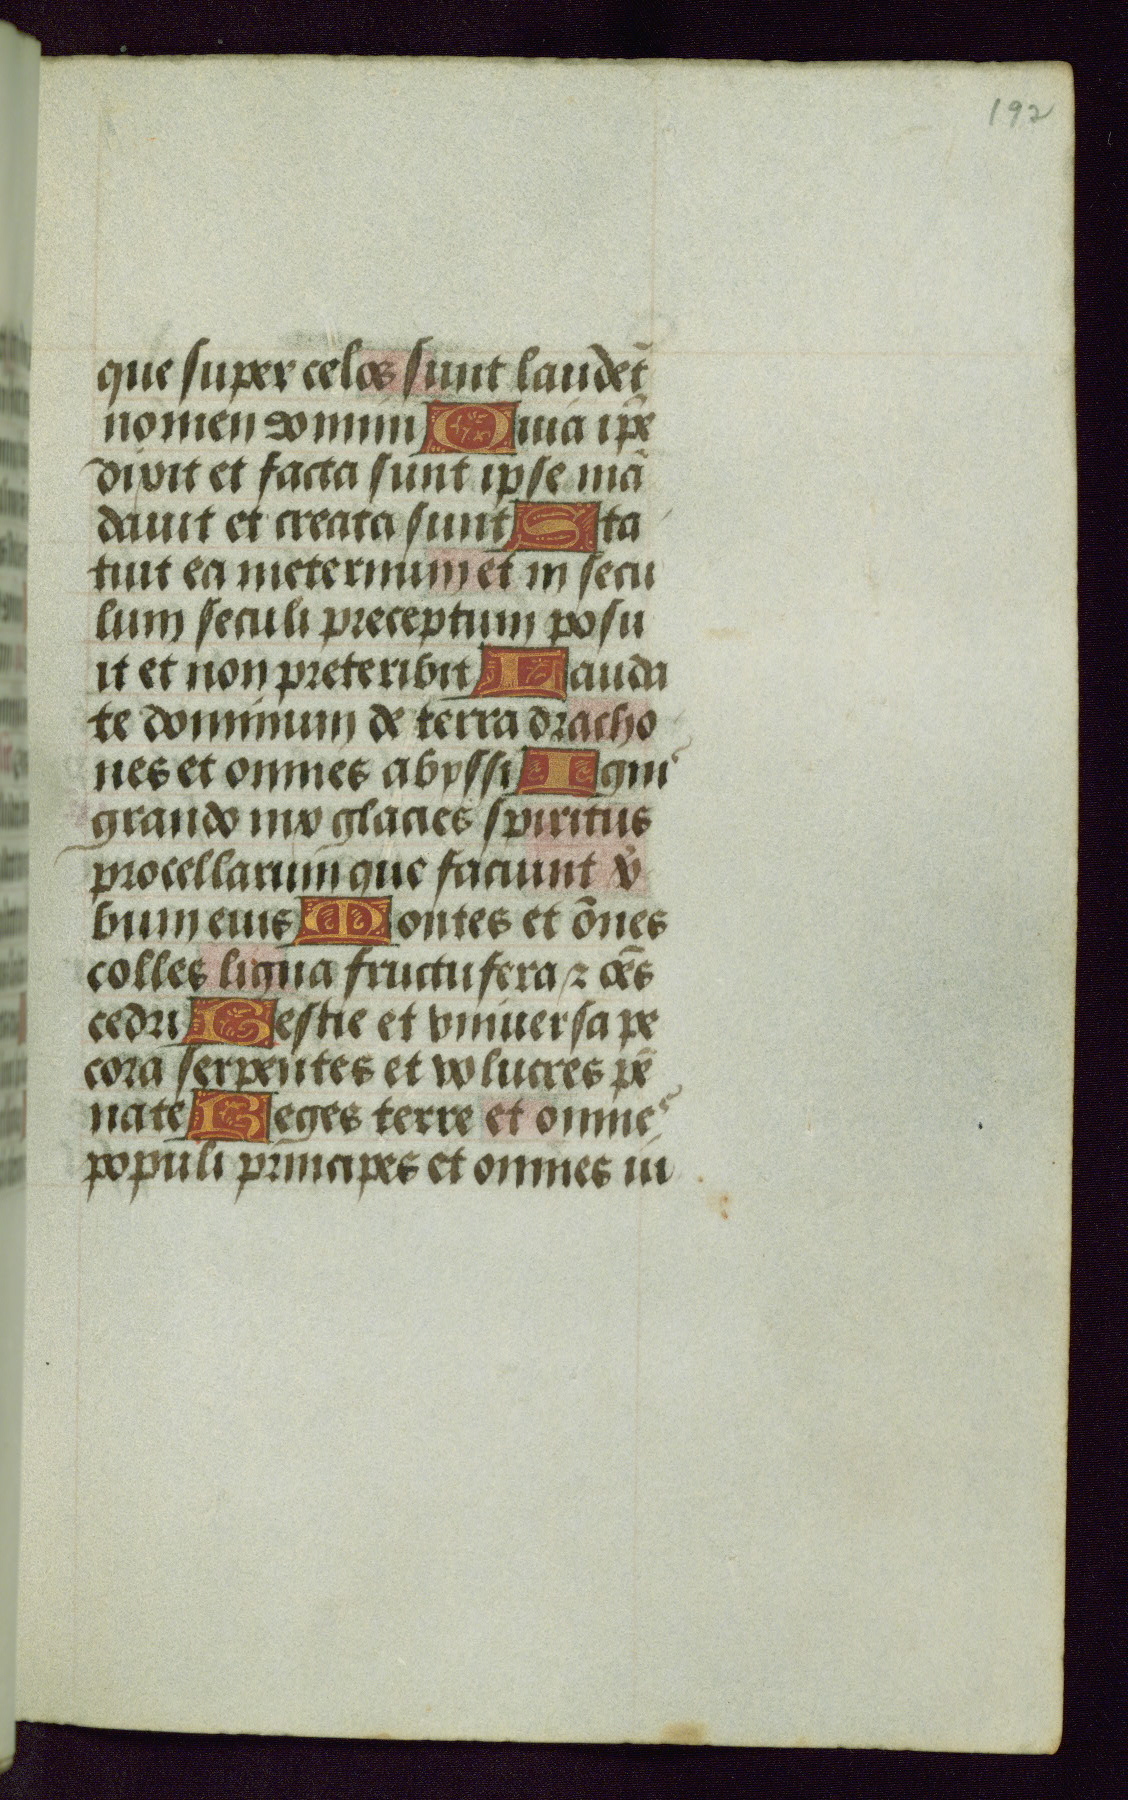 192
que super celos sunt laudet̄
nomen domini Q̄uia ip̄e
dixit et facta sunt ipse mā
dauit et creata sunt Sta
tuit ea ineternum et in secu
lum seculi preceptum posu
it et non preteribit Lauda
te dominum de terra dracho
nes et omnes abyssi Ignis
grando nix glacies spiritus
procellarum que faciunt v̓
bum eius Montes et ōnes
colles ligna fructufera ⁊ oēs
cedri Bestie et vniuersa pe
cora serpentes et volucres pē
nate Reges terre et omnes
populi principes et omnes iu